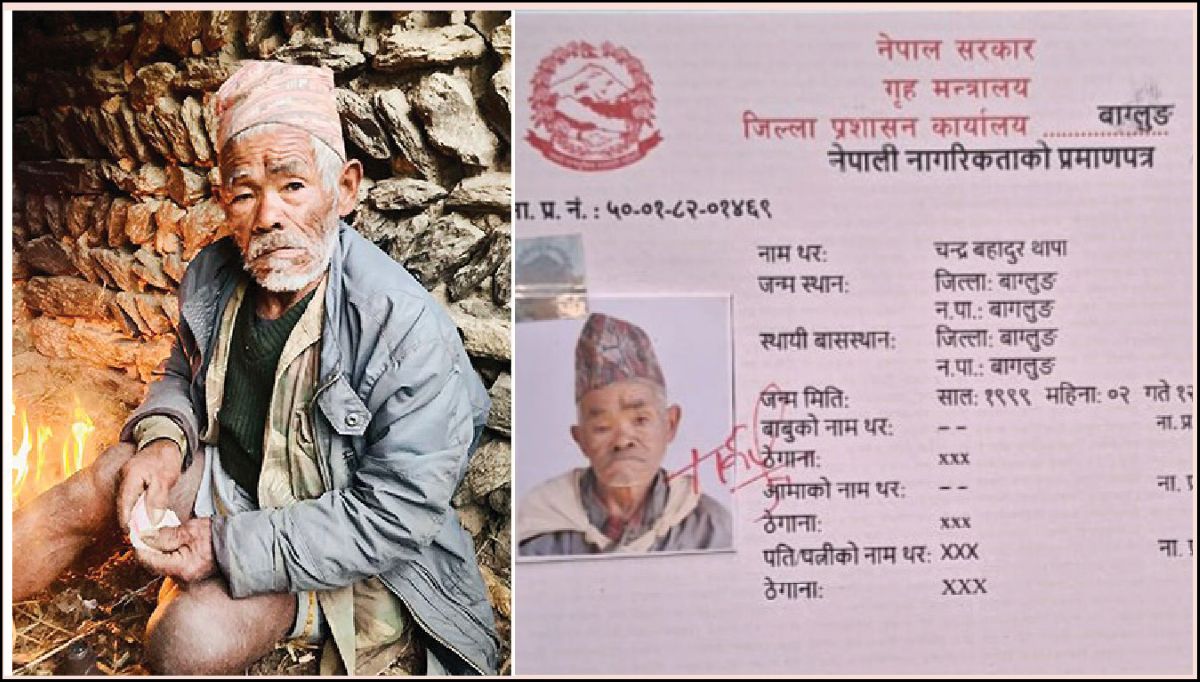 नेपाल सरकार
गृह मन्त्रालय
जिल्ला प्रशासन कार्यालय .................. बाग्लुङ
नेपाली नागरिकताको प्रमाणपत्र
ना. प्र. नं. : ५०-०१-८२-०१४६९
नाम थर: चन्द्र बहादुर थापा
जन्म स्थान: जिल्ला: बाग्लुङ
न.पा.: बागलुङ
स्थायी बासस्थान: जिल्ला: बाग्लुङ
न.पा.: बागलुङ
जन्म मिति: साल: १९९९ महिना: ०२ गते १२
बाबुको नाम थर: -- ना. प्र
ठेगाना: xxx
आमाको नाम थर: -- ना. प्र
ठेगाना: xxx
पति/पत्नीको नाम थर: XXX ना. प्र
ठेगाना: XXX